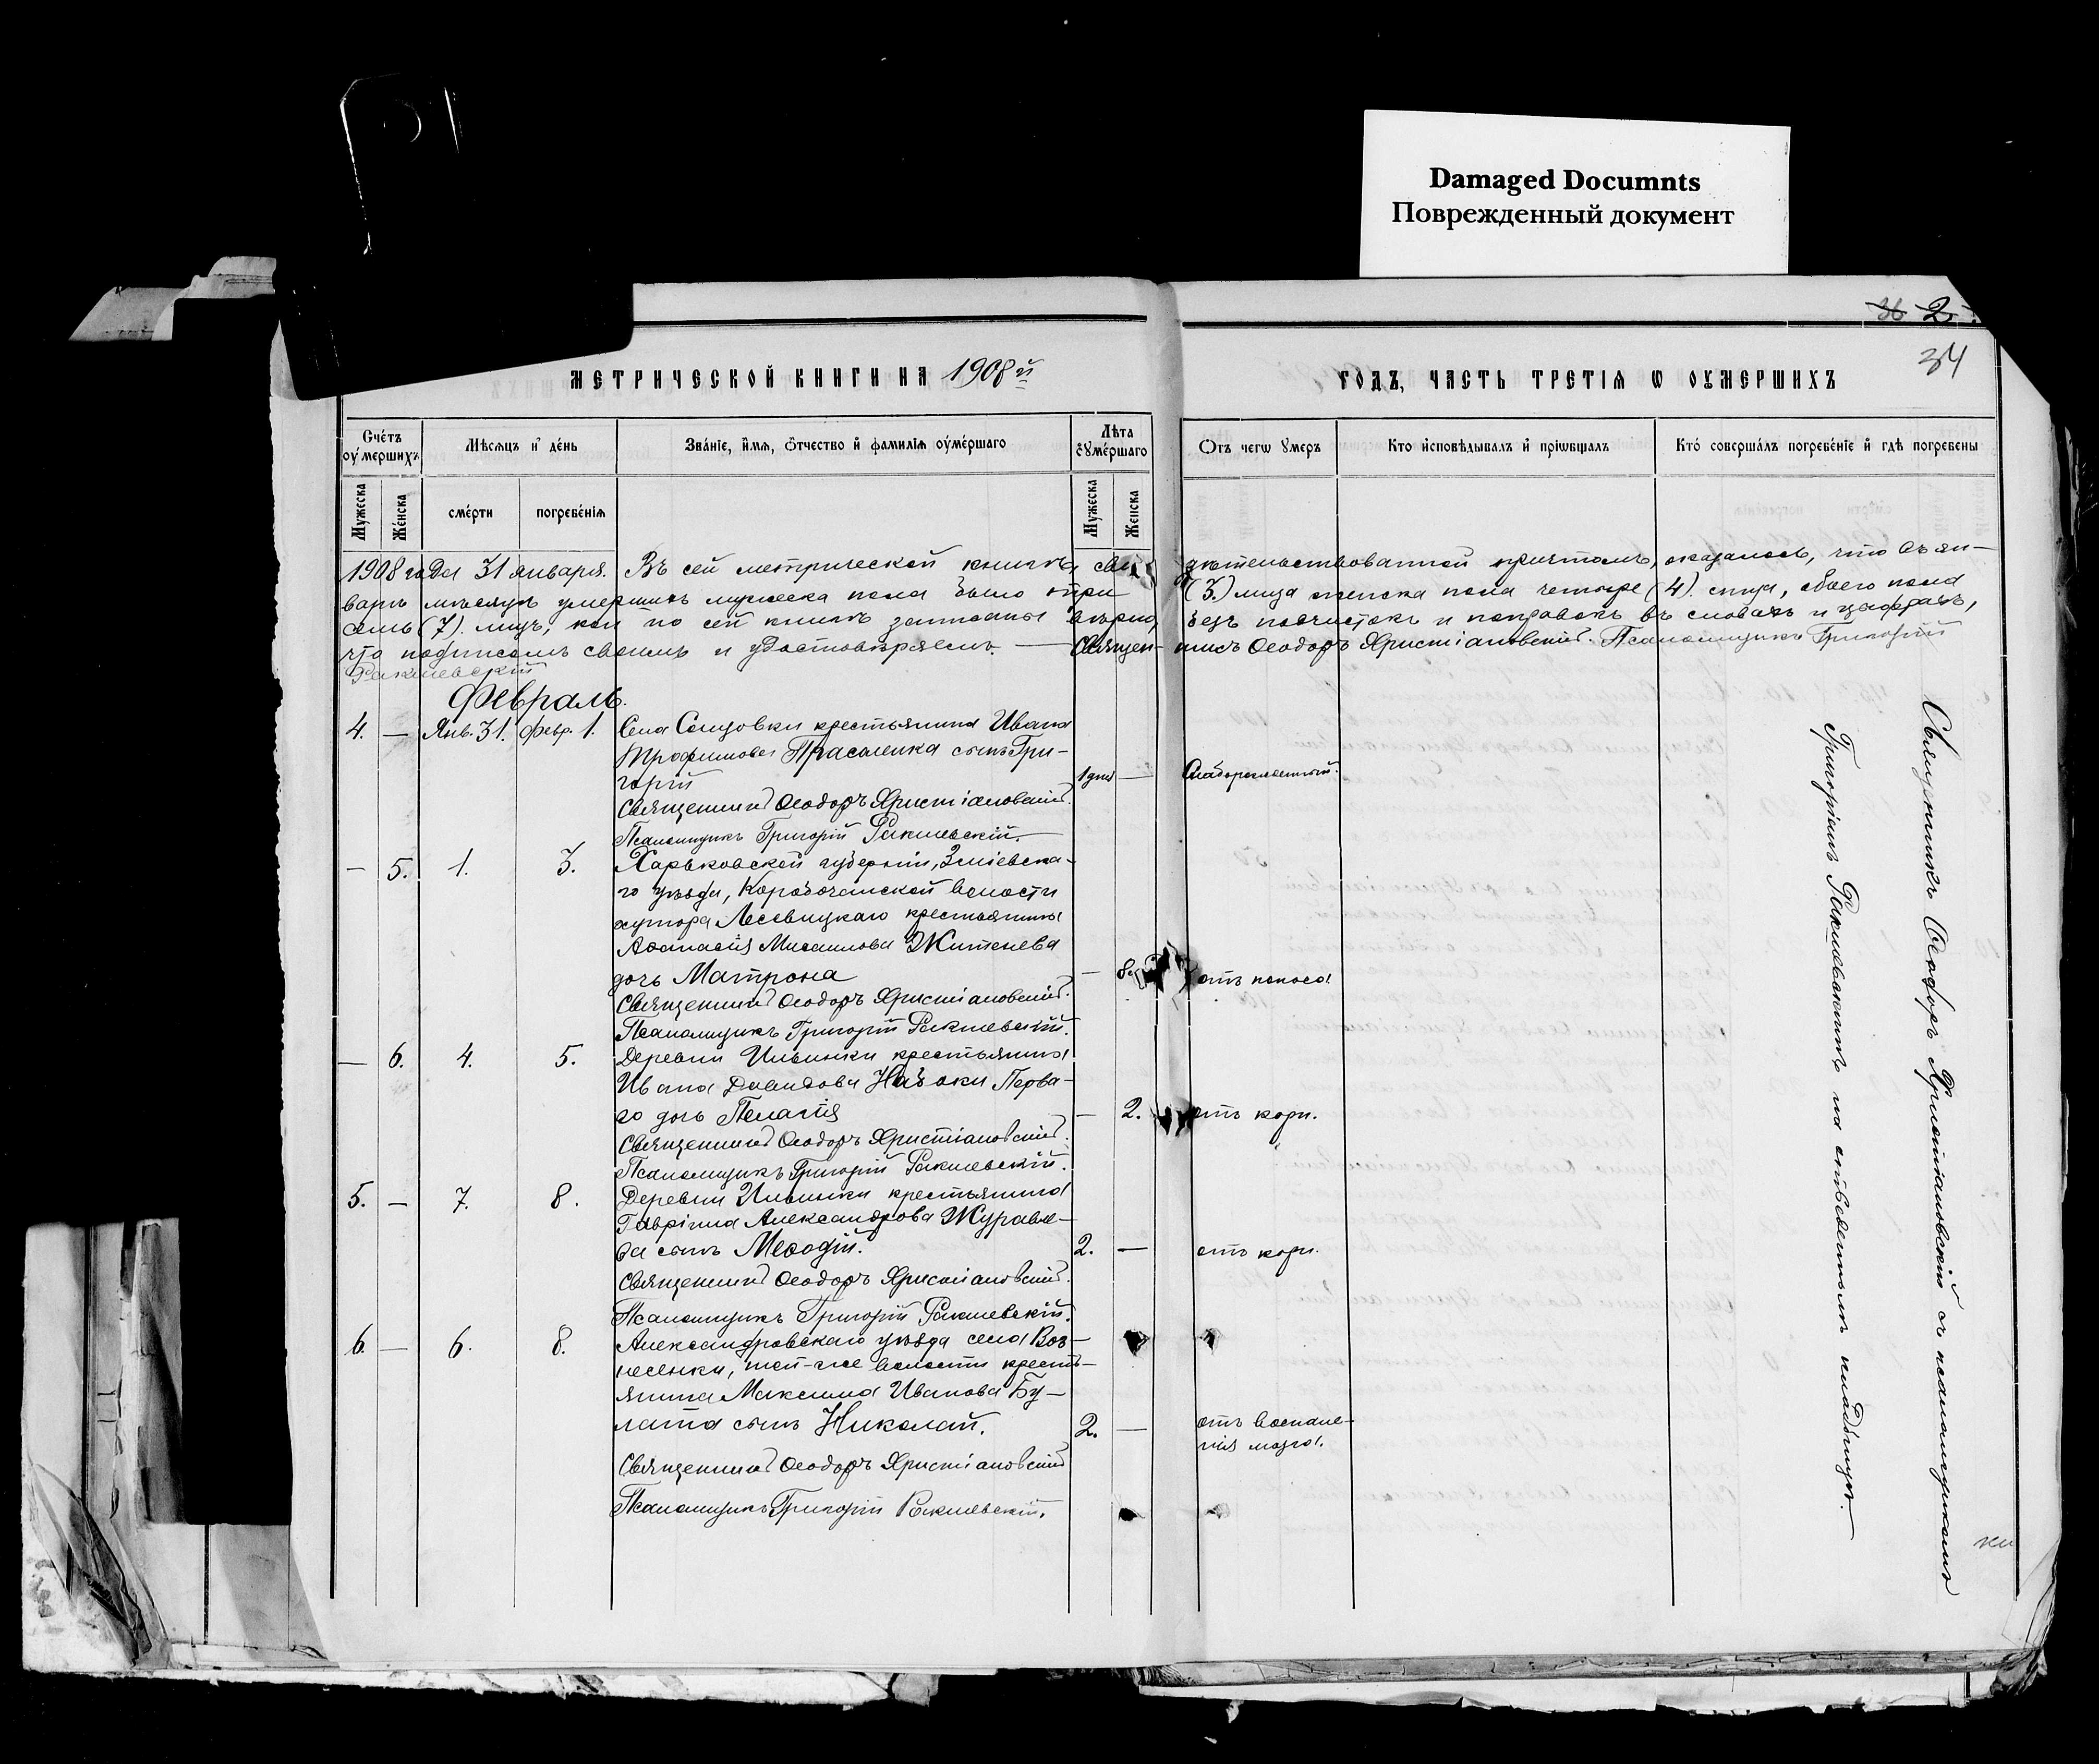 Damaged Documnts
Поврежденный документ
36 2.
34
МЕТРИЧЕСКОЙ КНИГИ НА 1908й ГОДЪ, ЧАСТЬ ТРЕТІЯ Ѡ ОУМЕРШИХЪ
Счетъ оумершихъ
Мѣсяцъ и день
Званіе, имя, отчество и фамилія оумершаго
Лѣта оумершаго
Отъ чегѡ умеръ
Кто исповѣдывалъ и пріѡбщалъ
Кто совершалъ погребеніе и гдѣ погребены
Мужеска
Женска
смерти
погребенія
Мужеска
Женска
1908 года 31 января. Въ сей метрической книгѣ, сви дѣтельствованной причтомъ, оказалось, что въ ян-
варѣ мѣсяцѣ умершихъ мужеска пола было три (3) лица женска пола четыре (4) лица, обоего пола
семь (7) лицъ, кои по сей книгѣ записаны вѣрно, безъ подчистокъ и поправокъ въ словахъ и цифрахъ,
что подписомъ своимъ и удостовѣряемъ. — Священ- никъ Ѳеодоръ Христіановскій. Псаломщикъ Григорій
Ракшевскій
Февраль.
4. — Янв. 31. Февр. 1. Села Солцовки крестьянина Ивана
Трофимова Прасоленка сынъ Гри-
горій 1 дня — Слаборожденный.
Священникъ Ѳеодоръ Христіановскій.
Псаломщикъ Григорій Ракшевскій.
— 5. 1. 3. Харьковской губерніи, Зміевска-
го уѣзда, Коробочанской волости
хутора Лесевицкаго крестьянина
Аѳанасія Михаилова Житенева
дочь Матрона — 8 отъ поноса
Священникъ Ѳеодоръ Христіановскій.
Псаломщикъ Григорій Ракшевскій.
— 6. 4. 5. Деревни Ильинки крестьянина
Ивана Давидова Набоки Перва-
го дочь Пелагія — 2. отъ кори.
Священникъ Ѳеодоръ Христіановскій.
Псаломщикъ Григорій Ракшевскій.
5. — 7. 8. Деревни Ильинки крестьянина
Гавріила Александрова Журавле-
ва сынъ Меѳодій. 2. — отъ кори.
Священникъ Ѳеодоръ Христіановскій.
Псаломщикъ Григорій Ракшевскій.
6. — 6. 8. Александровскаго уѣзда села Воз-
несенки, той-же волости кресть-
янина Максима Иванова Бу-
лата сынъ Николай. 2. — отъ воспале-
нія мозга.
Священникъ Ѳеодоръ Христіановскій
Псаломщикъ Григорій Ракшевскій.
Священникъ Ѳеодоръ Христіановскій съ псаломщикомъ
Григоріемъ Ракшевскимъ на отведенномъ кладбищѣ.